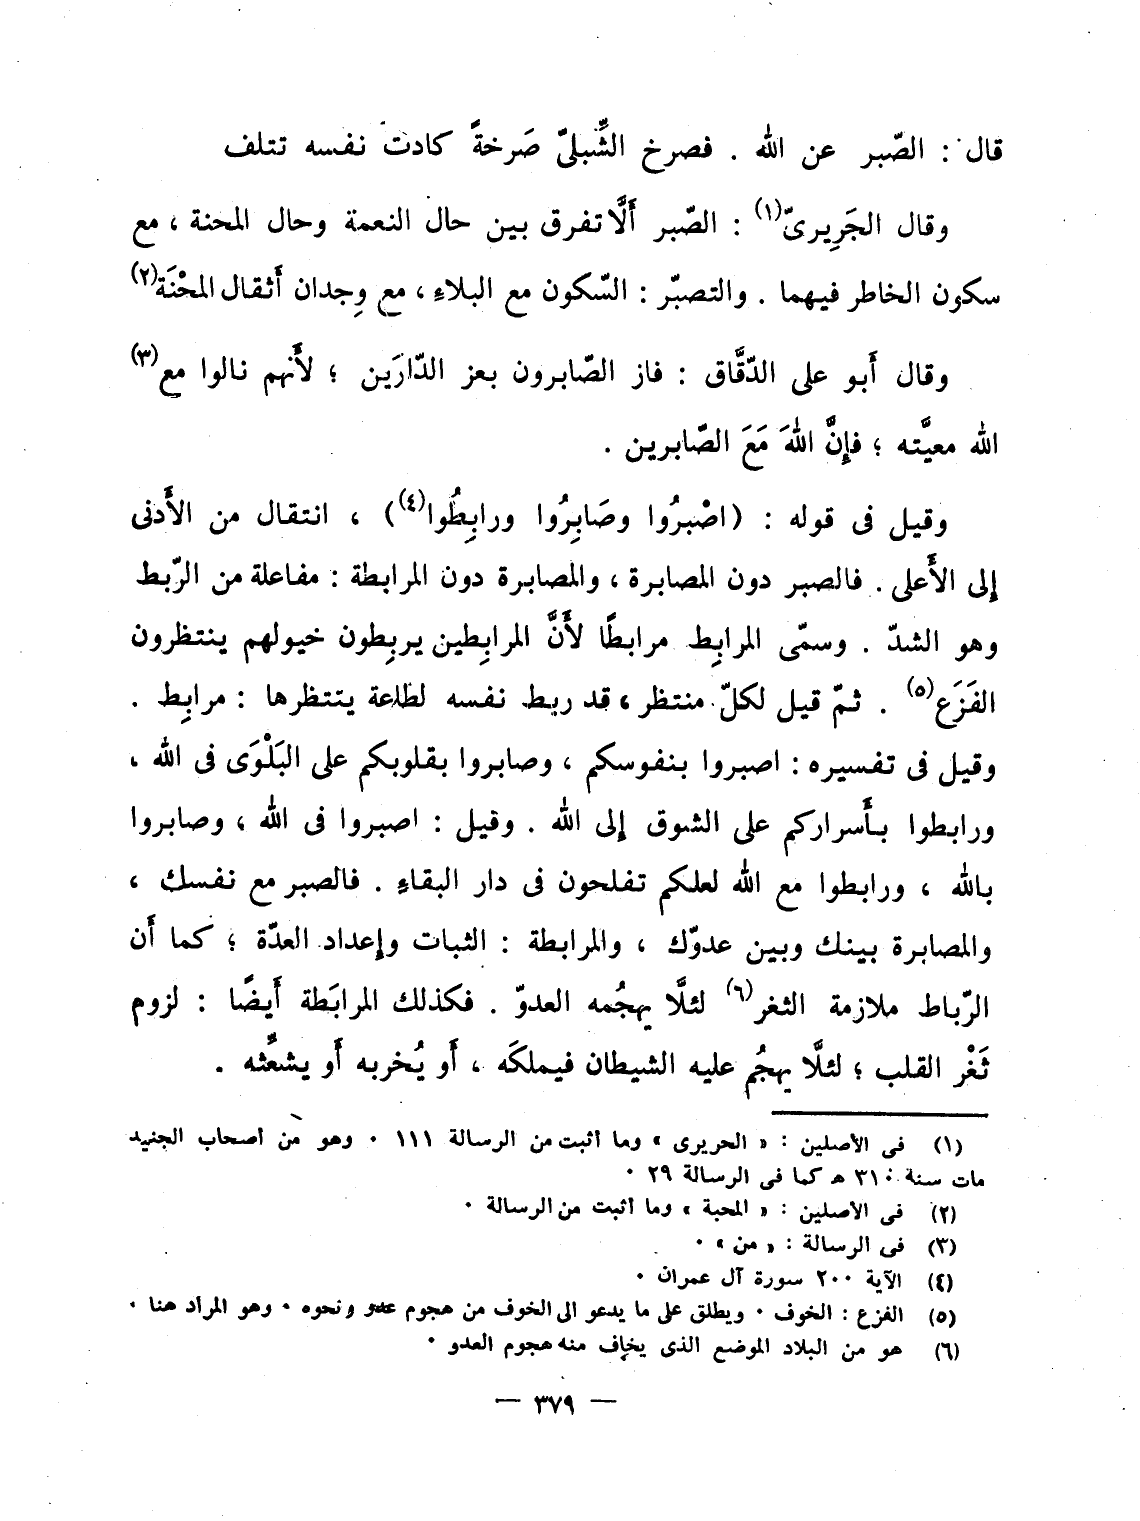 قال : الصّبر عن الله . فصرخ الشِّبليّ صَرخةً كادت نفسه تتلف
وقال الجَرِيرىّ(١) : الصّبر أَلَّا تفرق بين حال النعمة وحال المحنة ، مع
سكون الخاطر فيهما . والتصبّر : السّكون مع البلاءِ ، مع وِجدان أَثقال المحْنَة(٢)
وقال أَبو على الدّقَّاق : فاز الصّابرون بعز الدّارَين ؛ لأَنهم نالوا مع(٣)
الله معيَّته ؛ فإِنَّ اللهَ مَعَ الصّابرين .
وقيل فى قوله : (اصْبرُوا وصَابِرُوا ورابِطُوا(٤)) ، انتقال من الأَدنى
إلى الأَعلى . فالصبر دون المصابرة ، والمصابرة دون المرابطة : مفاعلة من الرّبط
وهو الشدّ . وسمّى المرابِط مرابطًا لأَنَّ المرابِطين يربِطون خيولهم ينتظرون
الفَزَع(٥) . ثمّ قيل لكلّ منتظر ، قد ربط نفسه لطاعة ينتظرها : مرابِط .
وقيل فى تفسيره : اصبروا بنفوسكم ، وصابروا بقلوبكم على البَلْوَى فى الله ،
ورابطوا بأَسراركم على الشوق إلى الله . وقيل : اصبروا فى الله ، وصابروا
بالله ، ورابطوا مع الله لعلكم تفلحون فى دار البقاءِ . فالصبر مع نفسك ،
والمصابرة بينك وبين عدوّك ، والمرابطة : الثبات وإعداد العدّة ؛ كما أَن
الرّباط ملازمة الثغر(٦) لئلَّا يهجُمه العدوّ . فكذلك المرابَطة أَيضًا : لزوم
ثَغْر القلب ؛ لئلَّا يهجُم عليه الشيطان فيملكَه ، أَو يُخربه أَو يشعِّثه .
(١) فى الأصلين : « الحريرى » وما أثبت من الرسالة ١١١ . وهو من أصحاب الجنيد
مات سنة ٣١٠ هـ كما فى الرسالة ٢٩ .
(٢) فى الأصلين : « المحبة » وما أثبت من الرسالة .
(٣) فى الرسالة : « من » .
(٤) الآية ٢٠٠ سورة آل عمران .
(٥) الفزع : الخوف . ويطلق على ما يدعو الى الخوف من هجوم عدو ونحوه . وهو المراد هنا .
(٦) هو من البلاد الموضع الذى يخاف منه هجوم العدو .
— ٣٧٩ —